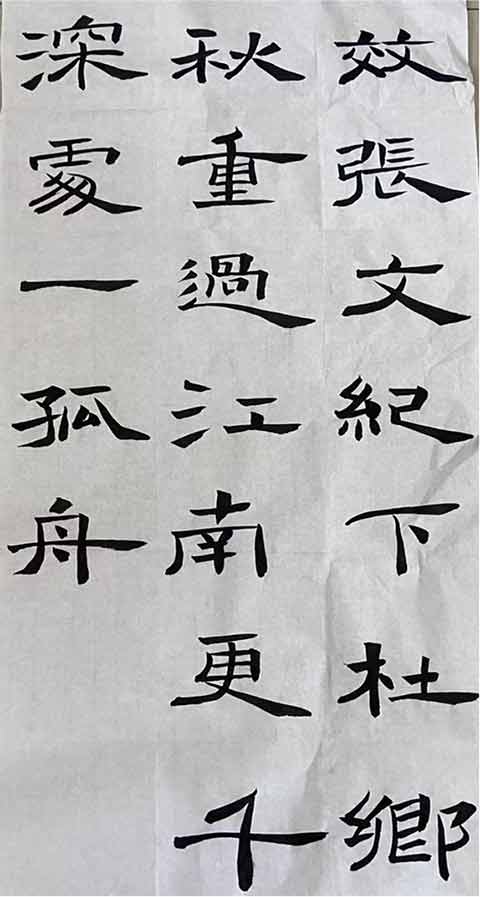 效張文紀下杜鄉
秋重過江南更千
深處一孤舟